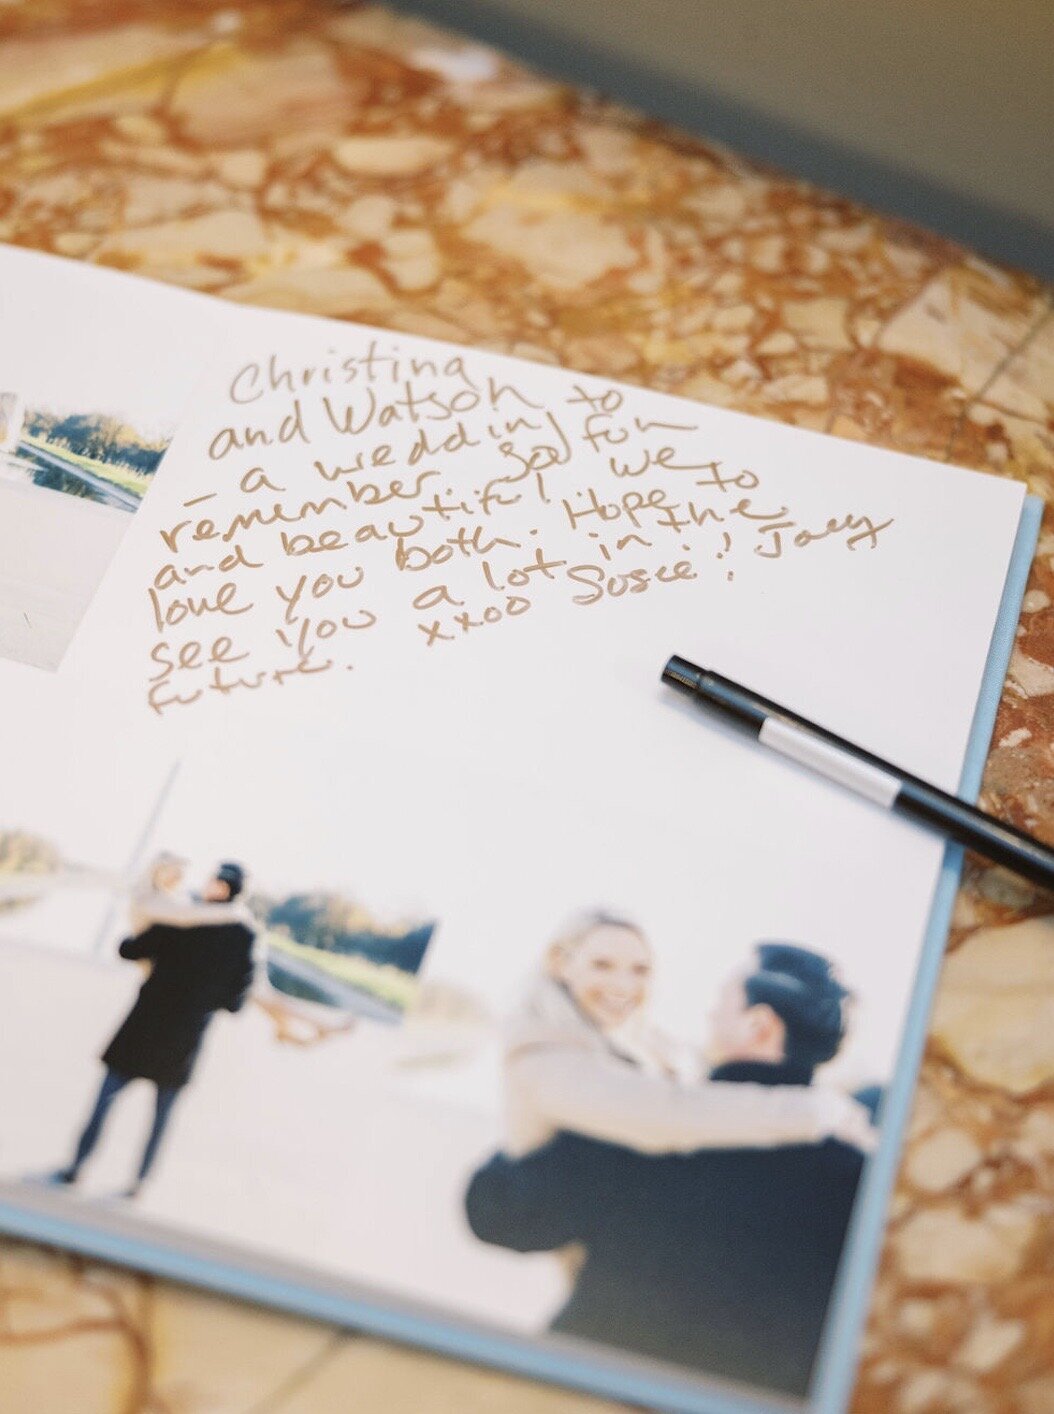 Christina
and Watson
- a wedding to
remember so fun
and beautiful we
love you both. Hope to
see you a lot in the
future. xxoo Susie! Joey